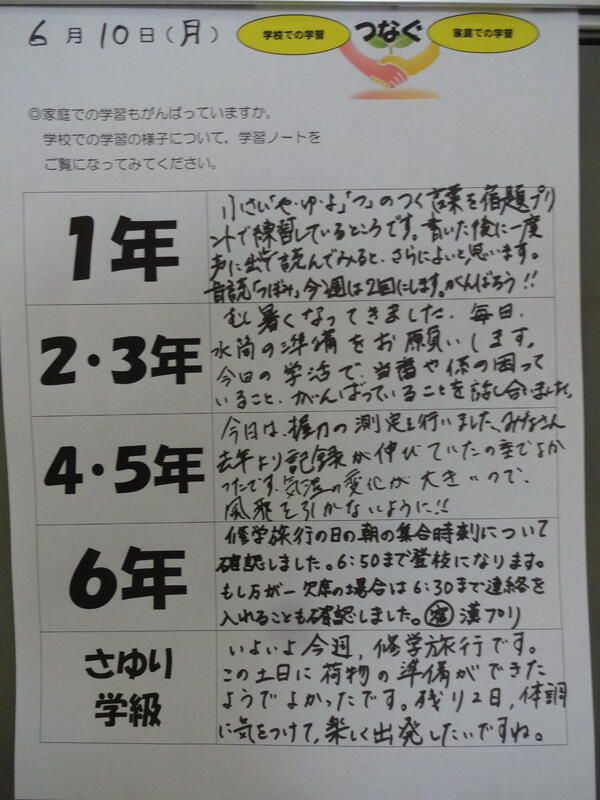 6月10日(月)
学校での学習 つなぐ 家庭での学習
◎家庭での学習もがんばっていますか。
学校での学習の様子について，学習ノートを
ご覧になってみてください。
1年
小さい「や・ゆ・よ」「つ」のつく言葉を宿題プリ
ントで練習しているところです。書いた後に一度
声に出して読んでみると、さらによいと思います。
音読「つぼみ」今週は2回にします。がんばろう!!
2・3年
むし暑くなってきました。毎日、
水筒の準備をお願いします。
今日の学活で、当番や係の困って
いること、がんばっていることを話し合いました。
4・5年
今日は、握力の測定を行いました。みなさん
去年より記録が伸びていたの でよか
ったです。気温の変化が大きいので、
風邪を引かないように!!
6年
修学旅行の日の朝の集合時刻について
確認しました。6:50まで登校になります。
もし万が一欠席の場合は6:30まで連絡を
入れることも確認しました。㊟漢プリ
さゆり
学級
いよいよ今週，修学旅行です。
この土日に荷物の準備ができた
ようでよかったです。残り2日，体調
に気をつけて，楽しく出発したいですね。